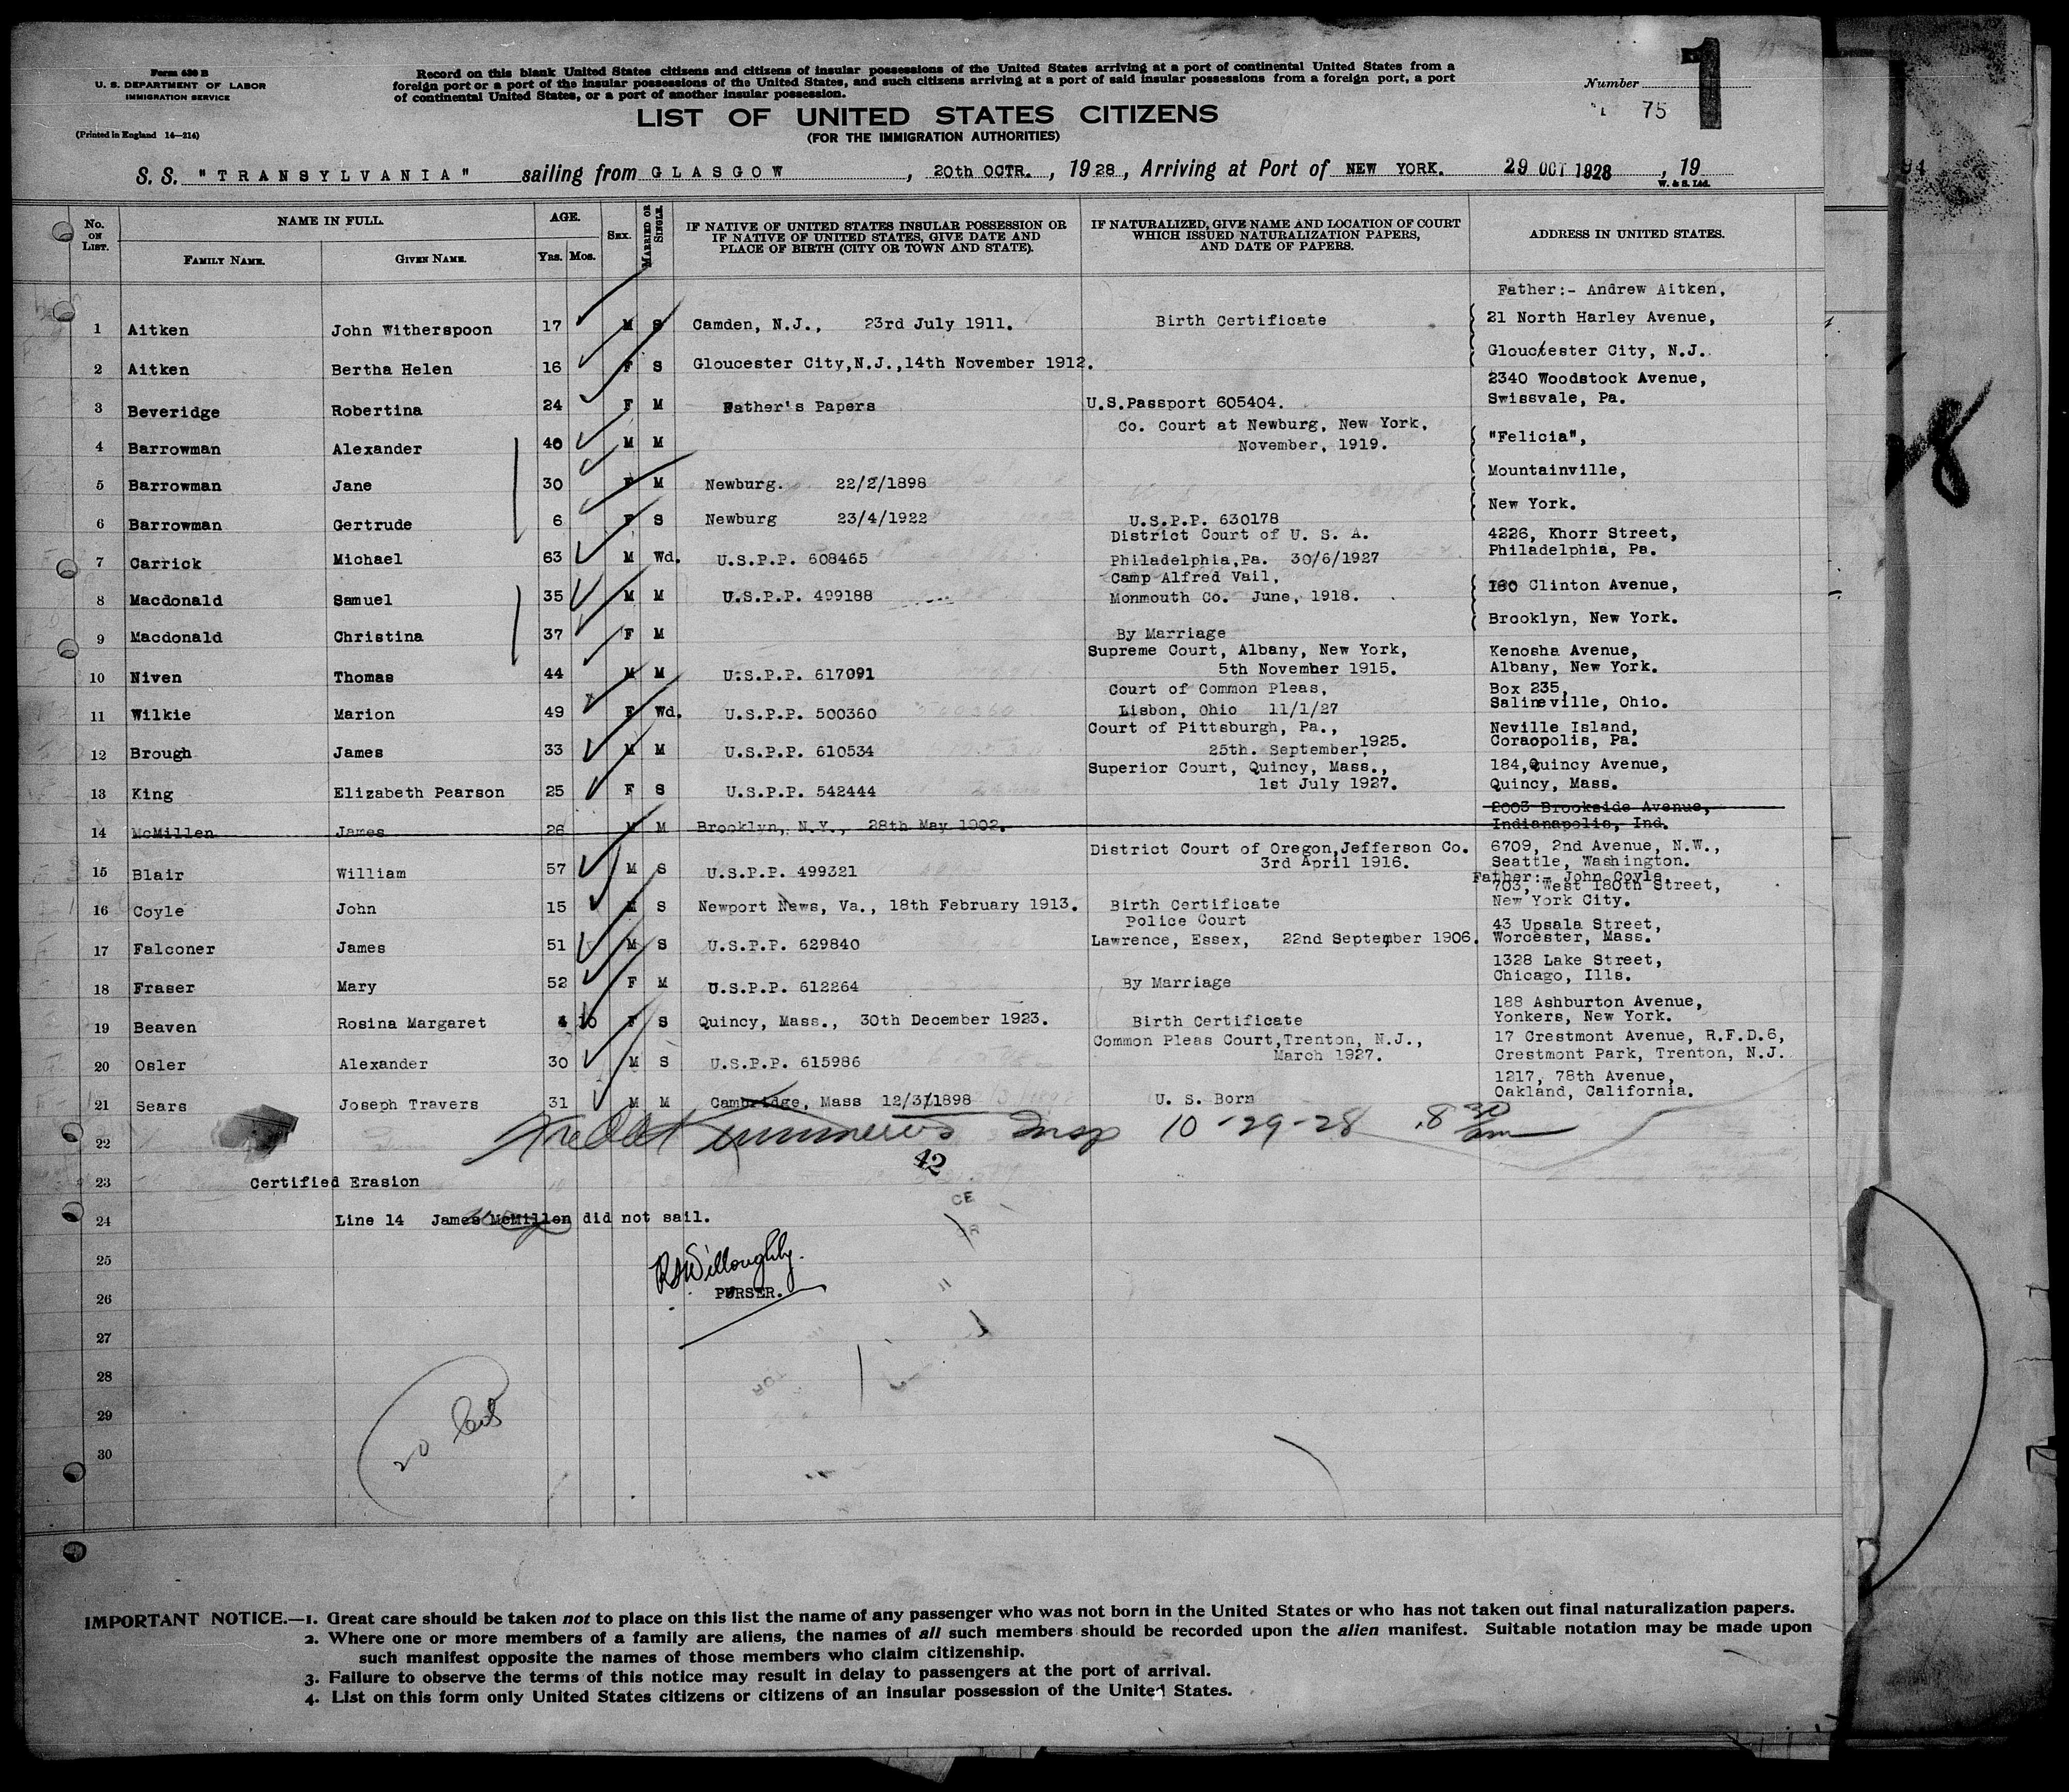 Form 630 B
U. S. DEPARTMENT OF LABOR
IMMIGRATION SERVICE
(Printed in England 14—214)
Record on this blank United States citizens and citizens of insular possessions of the United States arriving at a port of continental United States from a
foreign port or a port of the insular possessions of the United States, and such citizens arriving at a port of said insular possessions from a foreign port, a port
of continental United States, or a port of another insular possession.
Number
75
1
LIST OF UNITED STATES CITIZENS
(FOR THE IMMIGRATION AUTHORITIES)
S. S. "TRANSYLVANIA" sailing from GLASGOW, 20th OCTR., 1928, Arriving at Port of NEW YORK. 29 OCT 1928, 19
W. & S. Ltd.
No. ON LIST. NAME IN FULL. FAMILY NAME. GIVEN NAME. AGE. Yrs. Mos. SEX. MARRIED OR SINGLE. IF NATIVE OF UNITED STATES INSULAR POSSESSION OR IF NATIVE OF UNITED STATES, GIVE DATE AND PLACE OF BIRTH (CITY OR TOWN AND STATE). IF NATURALIZED, GIVE NAME AND LOCATION OF COURT WHICH ISSUED NATURALIZATION PAPERS, AND DATE OF PAPERS. ADDRESS IN UNITED STATES.
Father:- Andrew Aitken,
1 Aitken John Witherspoon 17 M S Camden, N.J., 23rd July 1911. Birth Certificate 21 North Harley Avenue,
Gloucester City, N.J.
2 Aitken Bertha Helen 16 F S Gloucester City,N.J.,14th November 1912.
2340 Woodstock Avenue,
3 Beveridge Robertina 24 F M Father's Papers U.S.Passport 605404. Swissvale, Pa.
Co. Court at Newburg, New York,
4 Barrowman Alexander 40 M M November, 1919. "Felicia",
Mountainville,
5 Barrowman Jane 30 F M Newburg. 22/2/1898
New York.
6 Barrowman Gertrude 6 F S Newburg 23/4/1922 U.S.P.P. 630178
District Court of U. S. A. 4226, Khorr Street,
7 Carrick Michael 63 M Wd. U.S.P.P. 608465 Philadelphia,Pa. 30/6/1927 Philadelphia, Pa.
Camp Alfred Vail,
8 Macdonald Samuel 35 M M U.S.P.P. 499188 Monmouth Co. June, 1918. 180 Clinton Avenue,
Brooklyn, New York.
9 Macdonald Christina 37 F M By Marriage
Supreme Court, Albany, New York, Kenosha Avenue,
10 Niven Thomas 44 M M U.S.P.P. 617091 5th November 1915. Albany, New York.
Court of Common Pleas, Box 235,
11 Wilkie Marion 49 F Wd. U.S.P.P. 500360 Lisbon, Ohio 11/1/27 Salineville, Ohio.
Court of Pittsburgh, Pa., Neville Island,
12 Brough James 33 M M U.S.P.P. 610534 25th. September, 1925. Coraopolis, Pa.
Superior Court, Quincy, Mass., 184,Quincy Avenue,
13 King Elizabeth Pearson 25 F S U.S.P.P. 542444 1st July 1927. Quincy, Mass.
2003 Brookside Avenue,
14 McMillen James 26 M M Brooklyn, N.Y., 28th May 1902. Indianapolis, Ind.
District Court of Oregon,Jefferson Co. 6709, 2nd Avenue, N.W.,
15 Blair William 57 M S U.S.P.P. 499321 3rd April 1916. Seattle, Washington.
Father:- John Coyle,
703, West 180th Street,
16 Coyle John 15 M S Newport News, Va., 18th February 1913. Birth Certificate New York City.
Police Court 43 Upsala Street,
17 Falconer James 51 M S U.S.P.P. 629840 Lawrence, Essex, 22nd September 1906. Worcester, Mass.
1328 Lake Street,
18 Fraser Mary 52 F M U.S.P.P. 612264 By Marriage Chicago, Ills.
188 Ashburton Avenue,
19 Beaven Rosina Margaret 4 10 F S Quincy, Mass., 30th December 1923. Birth Certificate Yonkers, New York.
Common Pleas Court,Trenton, N.J., 17 Crestmont Avenue, R.F.D.6,
20 Osler Alexander 30 M S U.S.P.P. 615986 March 1927. Crestmont Park, Trenton, N.J.
1217, 78th Avenue,
21 Sears Joseph Travers 31 M M Cambridge, Mass 12/3/1898 U. S. Born Oakland, California.
22 Insp 10-29-28 8 30 am
42
23 Certified Erasion
CE
24 Line 14 James McMillen did not sail.
25 Willoughby.
26 PURSER.
27
28
29
30
20
IMPORTANT NOTICE.—1. Great care should be taken not to place on this list the name of any passenger who was not born in the United States or who has not taken out final naturalization papers.
2. Where one or more members of a family are aliens, the names of all such members should be recorded upon the alien manifest. Suitable notation may be made upon
such manifest opposite the names of those members who claim citizenship.
3. Failure to observe the terms of this notice may result in delay to passengers at the port of arrival.
4. List on this form only United States citizens or citizens of an insular possession of the United States.